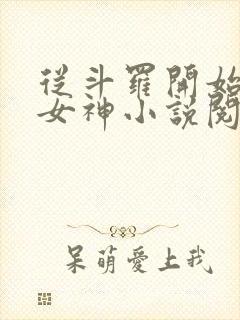 從斗羅開始
女神小説閱
呆萌愛上我